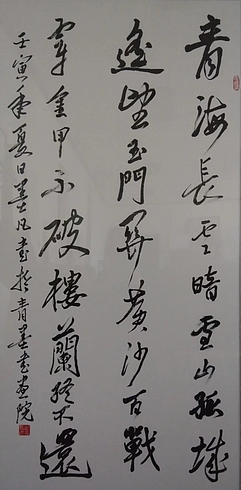 青海長云暗雪山孤城
遙望玉門關黃沙百戰
穿金甲不破樓蘭終不還
壬寅年夏日墨凡書於青墨書画院